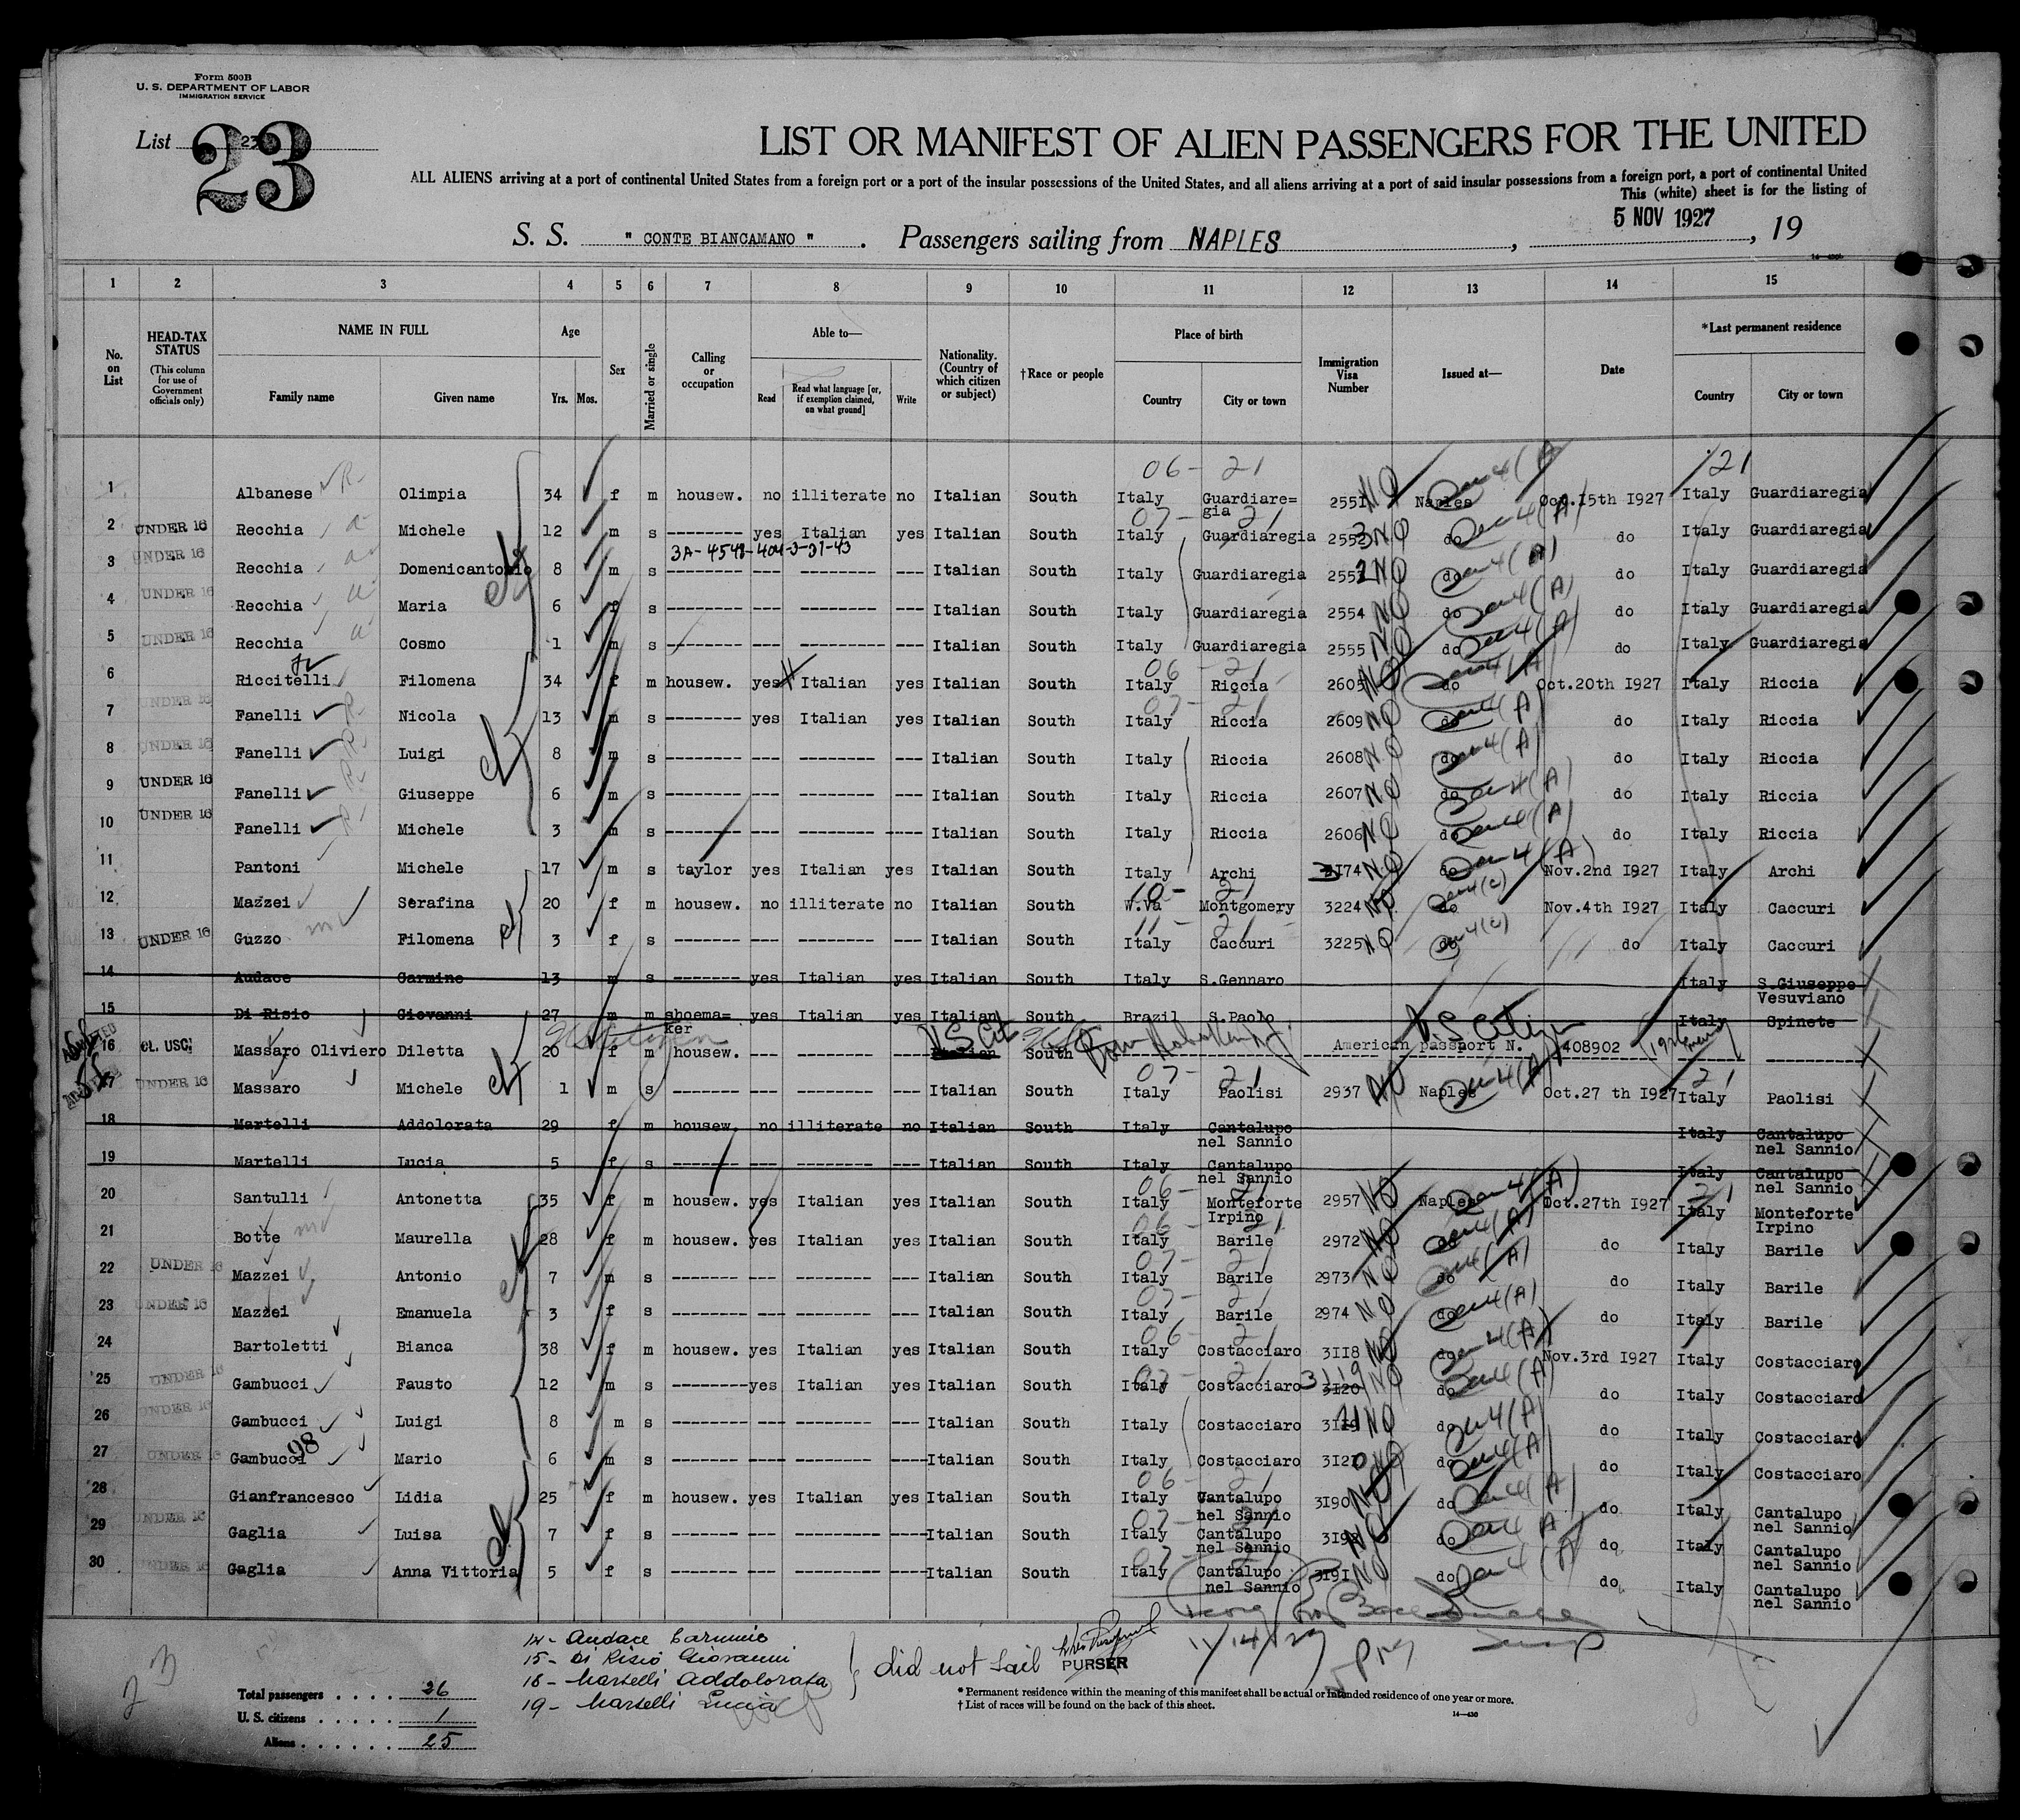 Form 500B
U. S. DEPARTMENT OF LABOR
IMMIGRATION SERVICE
List 23
23
LIST OR MANIFEST OF ALIEN PASSENGERS FOR THE UNITED
ALL ALIENS arriving at a port of continental United States from a foreign port or a port of the insular possessions of the United States, and all aliens arriving at a port of said insular possessions from a foreign port, a port of continental United
This (white) sheet is for the listing of
S. S. " CONTE BIANCAMANO " . Passengers sailing from NAPLES , 5 NOV 1927 , 19
1 2 3 4 5 6 7 8 9 10 11 12 13 14 15
No. on List HEAD-TAX STATUS (This column for use of Government officials only) NAME IN FULL Family name Given name Age Yrs. Mos. Sex Married or single Calling or occupation Able to— Read Read what language [or, if exemption claimed, on what ground] Write Nationality. (Country of which citizen or subject) †Race or people Place of birth Country City or town Immigration Visa Number Issued at— Date *Last permanent residence Country City or town
06- 21 21
1 Albanese Olimpia 34 f m housew. no illiterate no Italian South Italy Guardiare=gia 2551 NQ Naples Oct.15th 1927 Italy Guardiaregia
07- 21
2 UNDER 16 Recchia Michele 12 m s -------- yes Italian yes Italian South Italy Guardiaregia 2552 3 NQ do do Italy Guardiaregia
3 UNDER 16 Recchia Domenicantonio 8 m s -------- --- -------- --- Italian South Italy Guardiaregia 2553 2 NQ do do Italy Guardiaregia
4 UNDER 16 Recchia Maria 6 f s -------- --- -------- --- Italian South Italy Guardiaregia 2554 NQ do do Italy Guardiaregia
5 UNDER 16 Recchia Cosmo 1 m s -------- --- -------- --- Italian South Italy Guardiaregia 2555 NQ do do Italy Guardiaregia
06- 21
6 Riccitelli Filomena 34 f m housew. yes Italian yes Italian South Italy Riccia 2605 NQ do Oct.20th 1927 Italy Riccia
07- 21
7 UNDER 16 Fanelli Nicola 13 m s -------- yes Italian yes Italian South Italy Riccia 2609 NQ do do Italy Riccia
8 UNDER 16 Fanelli Luigi 8 m s -------- --- -------- --- Italian South Italy Riccia 2608 NQ do do Italy Riccia
9 UNDER 16 Fanelli Giuseppe 6 m s -------- --- -------- --- Italian South Italy Riccia 2607 NQ do do Italy Riccia
10 UNDER 16 Fanelli Michele 3 m s -------- --- -------- ---- Italian South Italy Riccia 2606 NQ do do Italy Riccia
11 Pantoni Michele 17 m s taylor yes Italian yes Italian South Italy Archi 3174 NQ do Nov.2nd 1927 Italy Archi
10- 21
12 Mazzei Serafina 20 f m housew. no illiterate no Italian South W.Va Montgomery 3224 do Nov.4th 1927 Italy Caccuri
11- 21
13 UNDER 16 Guzzo Filomena 3 f s -------- --- -------- --- Italian South Italy Caccuri 3225 NQ do do Italy Caccuri
14 Audace Carmine 13 m s -------- yes Italian yes Italian South Italy S.Gennaro Italy S.Giuseppe Vesuviano
15 Di Risio Giovanni 27 m m shoema=ker yes Italian yes Italian South Brazil S.Paolo Italy Spinete
16 cl. USC. Massaro Oliviero Diletta 20 f m housew. --- -------- --- Italian U S Cit South American passport N. 408902 U. S Citizen
07- 21 21
17 UNDER 16 Massaro Michele 1 m s -------- --- -------- --- Italian South Italy Paolisi 2937 NQ Naples Oct.27 th 1927 Italy Paolisi
18 Martelli Addolorata 29 f m housew. no illiterate no Italian South Italy Cantalupo nel Sannio Italy Cantalupo nel Sannio
19 Martelli Lucia 5 f s -------- --- -------- --- Italian South Italy Cantalupo nel Sannio Italy Cantalupo nel Sannio
06- 21 21
20 Santulli Antonetta 35 f m housew. yes Italian yes Italian South Italy Monteforte Irpino 2957 NQ Naples Oct.27th 1927 Italy Monteforte Irpino
06- 21
21 Botte Maurella 28 f m housew. yes Italian yes Italian South Italy Barile 2972 NQ do do Italy Barile
07- 21
22 UNDER 16 Mazzei Antonio 7 m s -------- --- -------- --- Italian South Italy Barile 2973 NQ do do Italy Barile
07- 21
23 UNDER 16 Mazzei Emanuela 3 f s -------- --- -------- --- Italian South Italy Barile 2974 NQ do do Italy Barile
06- 21
24 Bartoletti Bianca 38 f m housew. yes Italian yes Italian South Italy Costacciaro 3118 NQ do Nov.3rd 1927 Italy Costacciaro
07- 21 3119
25 UNDER 16 Gambucci Fausto 12 m s -------- yes Italian yes Italian South Italy Costacciaro 3120 NQ do do Italy Costacciaro
26 UNDER 16 Gambucci Luigi 8 m s -------- --- -------- --- Italian South Italy Costacciaro NQ do do Italy Costacciaro
98
27 UNDER 16 Gambucci Mario 6 m s -------- ---- -------- --- Italian South Italy Costacciaro NQ do do Italy Costacciaro
06- 21
28 Gianfrancesco Lidia 25 f m housew. yes Italian yes Italian South Italy Cantalupo nel Sannio 3190 NQ do do Italy Cantalupo nel Sannio
07- 21
29 UNDER 16 Gaglia Luisa 7 f s -------- --- -------- ---- Italian South Italy Cantalupo nel Sannio NQ do do Italy Cantalupo nel Sannio
07- 21
30 UNDER 16 Gaglia Anna Vittoria 5 f s -------- --- -------- --- Italian South Italy Cantalupo nel Sannio 3191 NQ do do Italy Cantalupo nel Sannio
14- Audace Carmine
15- Di Risio Giovanni
18- Martelli Addolorata
19- Martelli Lucia
did not sail
PURSER
11/14/27
23
Total passengers . . . . 26
U. S. citizens . . . . . 1
Aliens . . . . . . 25
* Permanent residence within the meaning of this manifest shall be actual or intended residence of one year or more.
† List of races will be found on the back of this sheet.
14—430